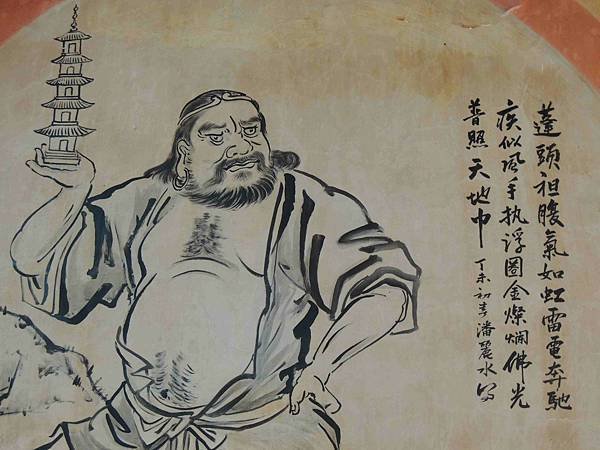 蓬頭袒腹氣如虹雷電奔馳
疾似风手执浮圖金燦爛佛光
普照天地中
丁未初春潘麗水寫